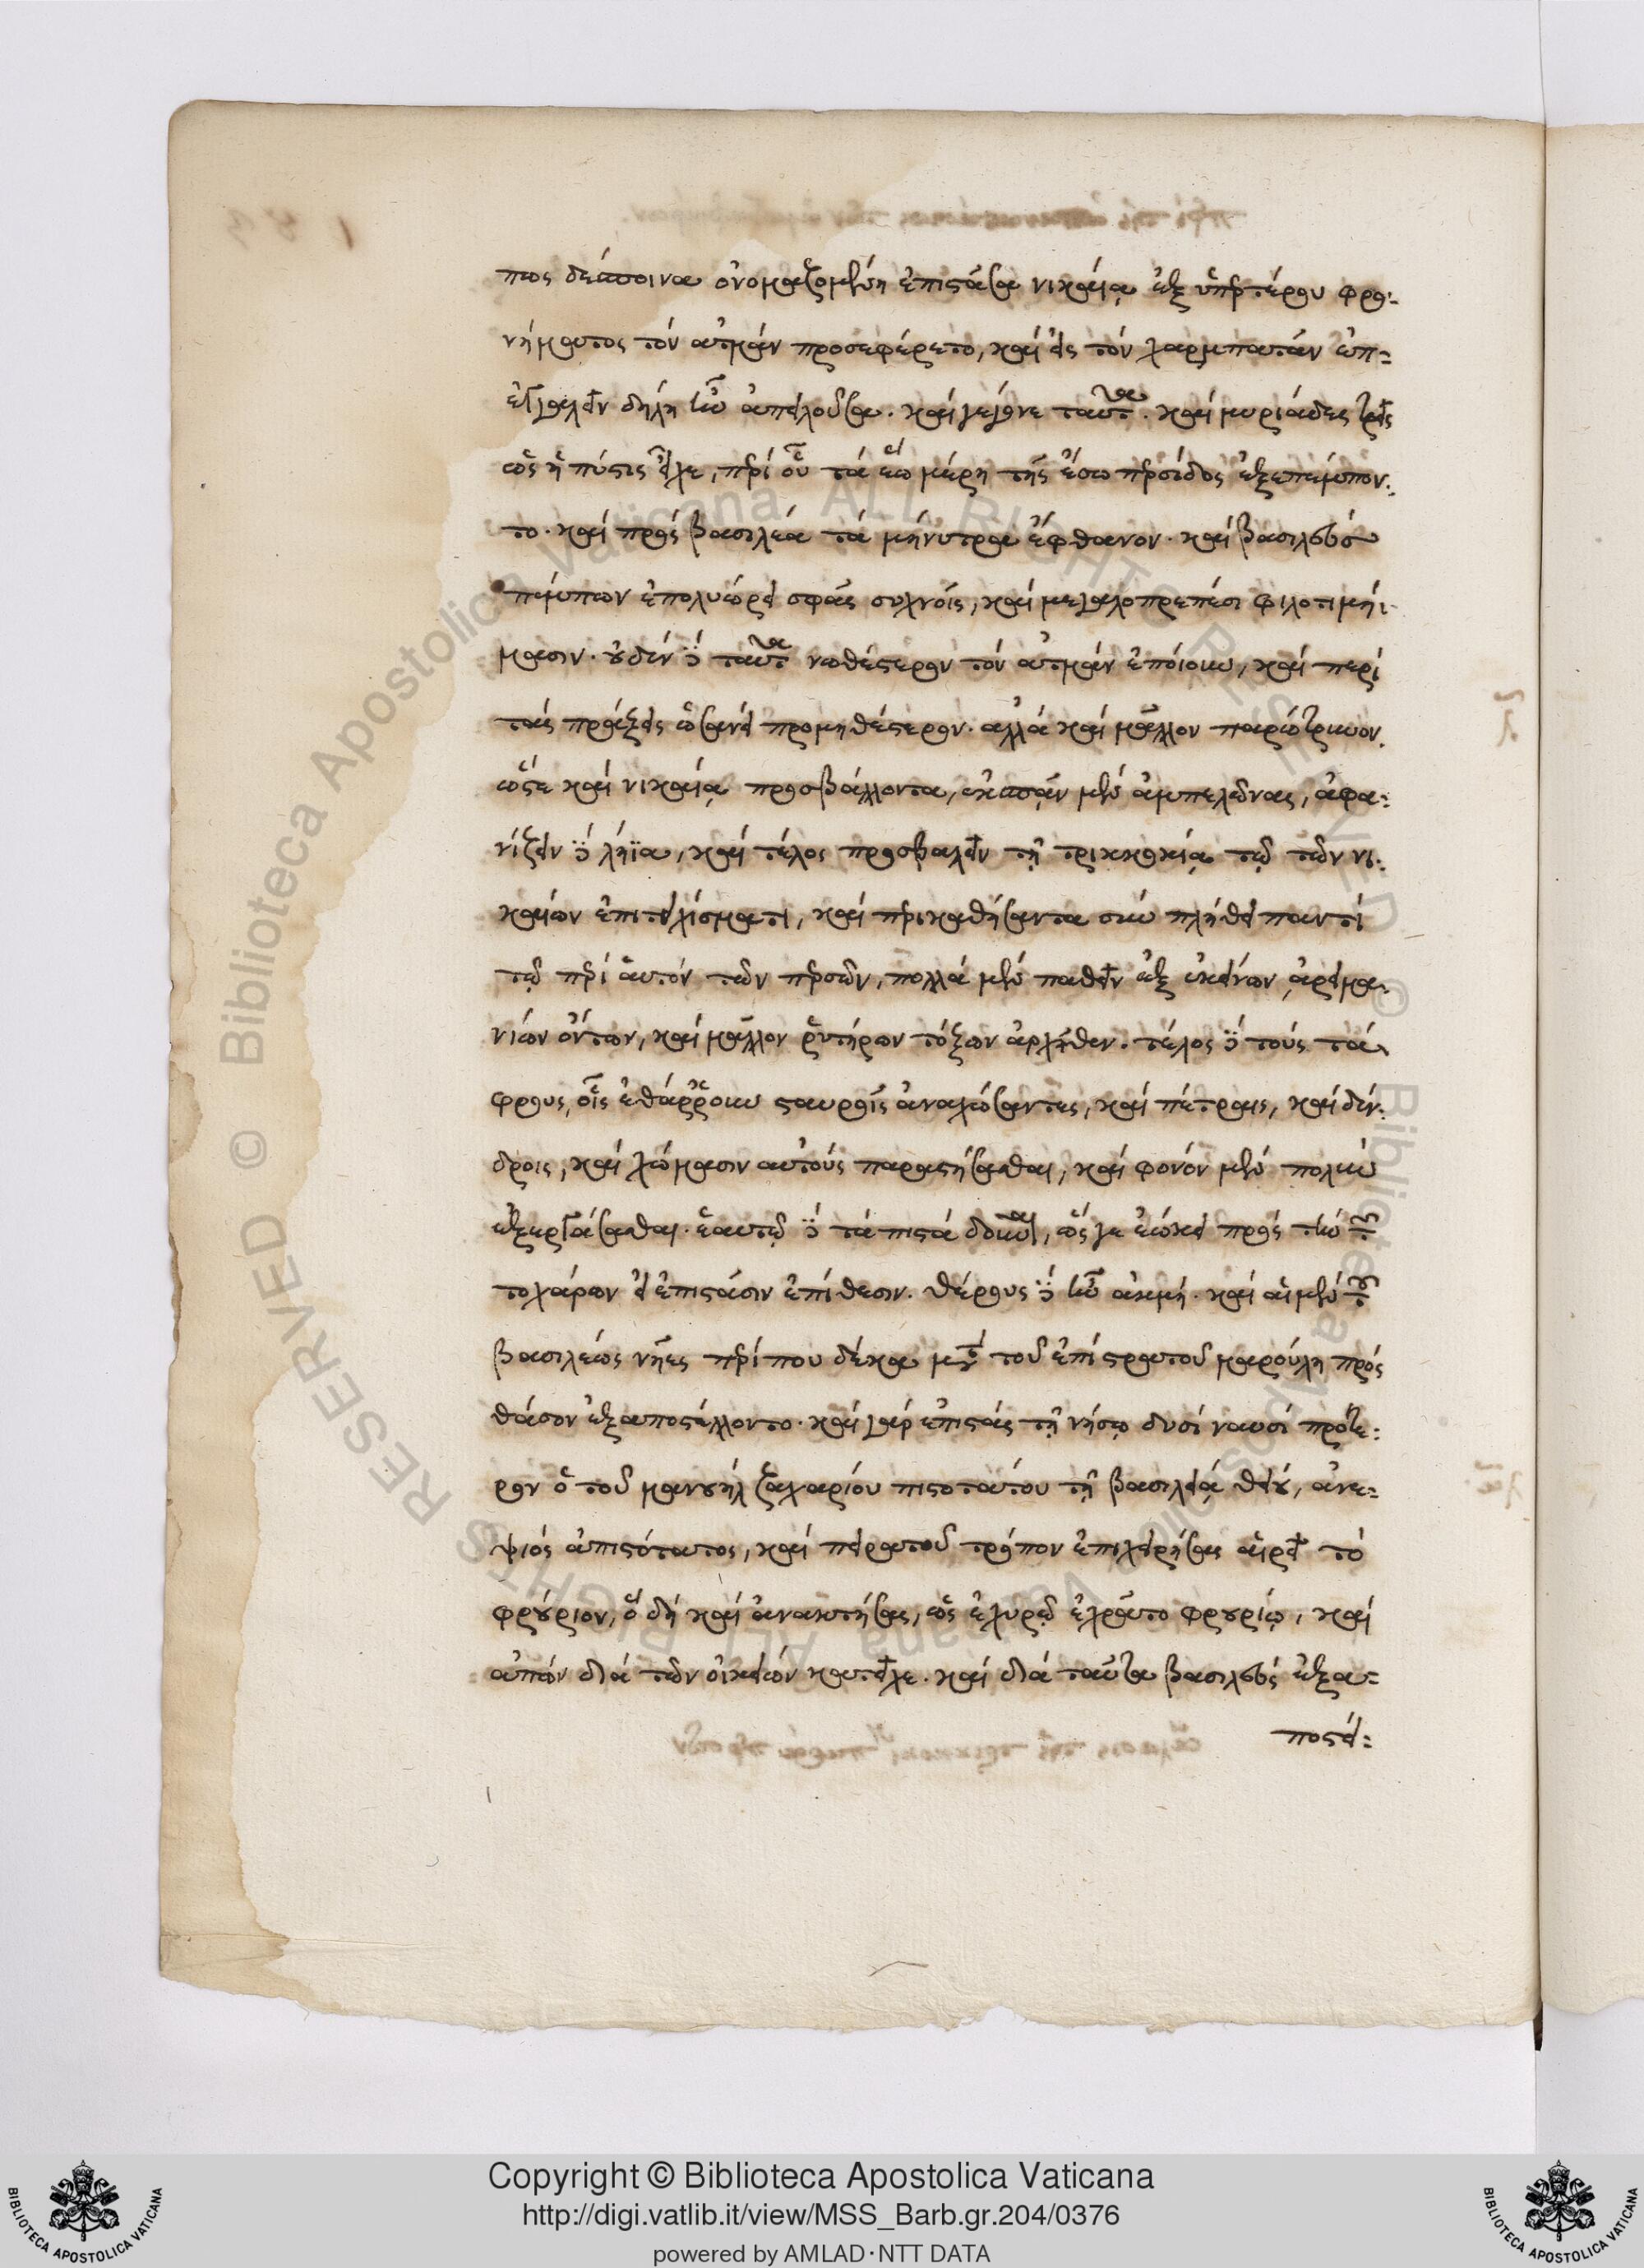 πως δέσποινα ὀνομαζομένη ἐπιστᾶσα νικαίᾳ ἐξ ὑπερτέρου φρο-
νήματος τὸν αὐτμὰν προσεφέρετο, καὶ εἰς τὸν χαρμπατὰν ἐπ-
δήλη ἦν ἀπειλοῦσα. καὶ γέγονε ταῦτα. καὶ μυριάδες τρεῖς
ὡς ἡ πύστις εἶχε, περὶ που τὰ ἕω μέρη τῆς ἔσω περσίδος ἐξεπέμπον-
το. καὶ πρὸς βασιλέα τὰ μήνυτρα ἔφθανον. καὶ βασιλεὺς
πέμπων ἐπολυώρει σφᾶς συχνοῖς, καὶ μεγαλοπρεπέσι φιλοτιμή-
μασιν. οὐδὲν δὲ ταῦτα νωθέστερον τὸν αὐτμὰν ἐποίουν, καὶ περὶ
τὰς πράξεις ὡσανεὶ προμηθέστερον. ἀλλὰ καὶ μᾶλλον παρώτρυνον
ὥστε καὶ νικαίᾳ προσβάλλοντα, ἐκσπᾶν μὲν ἀμπελῶνας, ἀφα-
νίζειν δὲ λήϊα, καὶ τέλος προσβαλεῖν τῇ τρικοκκίᾳ τῷ τῶν νι-
καίων ἐπιτειχίσματι, καὶ περικαθήσαντα σὺν πλήθει παντὶ
τῷ περὶ αὐτὸν τῶν περσῶν, πολλὰ μὲν παθεῖν ἐξ ἐκείνων ἀρειμα-
νίων ὄντων, καὶ μᾶλλον ῥυτήρων τόξων ἀρχῆθεν. τέλος δὲ τοὺς τά-
φρους, οἷς ἐθάρρουν σταυροῖς ἀναχώσαντες, καὶ πέτραις, καὶ δέν-
δροις, καὶ χώμασιν αὐτοὺς παραστήσασθαι, καὶ φόνον μὲν πολὺν
ἐξεργάσασθαι. ἑαυτῷ δὲ τὰ πιστὰ δοῦναι, ὥς γε ἐῴκει πρὸς τὴν τῶν
τοχάρων εἰ ἐπιστᾶσιν ἐπίθεσιν. θέρους δὲ ἦν ἀκμή. καὶ αἱ μὲν τοῦ
βασιλέως νῆες περί που δέκα μετὰ τοῦ ἐπὶ στρατοῦ μαρούλη πρὸς
θάσον ἐξαποστέλλοντο. καὶ γὰρ ἐπιστὰς τῇ νήσῳ δυσὶ ναυσὶ πρότε-
ρον ὁ τοῦ μανουὴλ ζαχαρίου πιστοτάτου τῇ βασιλείᾳ θείου, ἀνε-
ψιὸς ἀπιστότατος, καὶ πειρατοῦ τρόπον ἐπιχειρήσας αἱρεῖ τὸ
φρούριον, ὃ δὴ καὶ ἀνακτήσας, ὡς ἐχυρῷ ἐχρᾶτο φρουρίῳ, καὶ
διὰ τῶν οἰκείων κατεῖχε. καὶ διὰ ταῦτα βασιλεὺς ἐξα-
ποστέ-